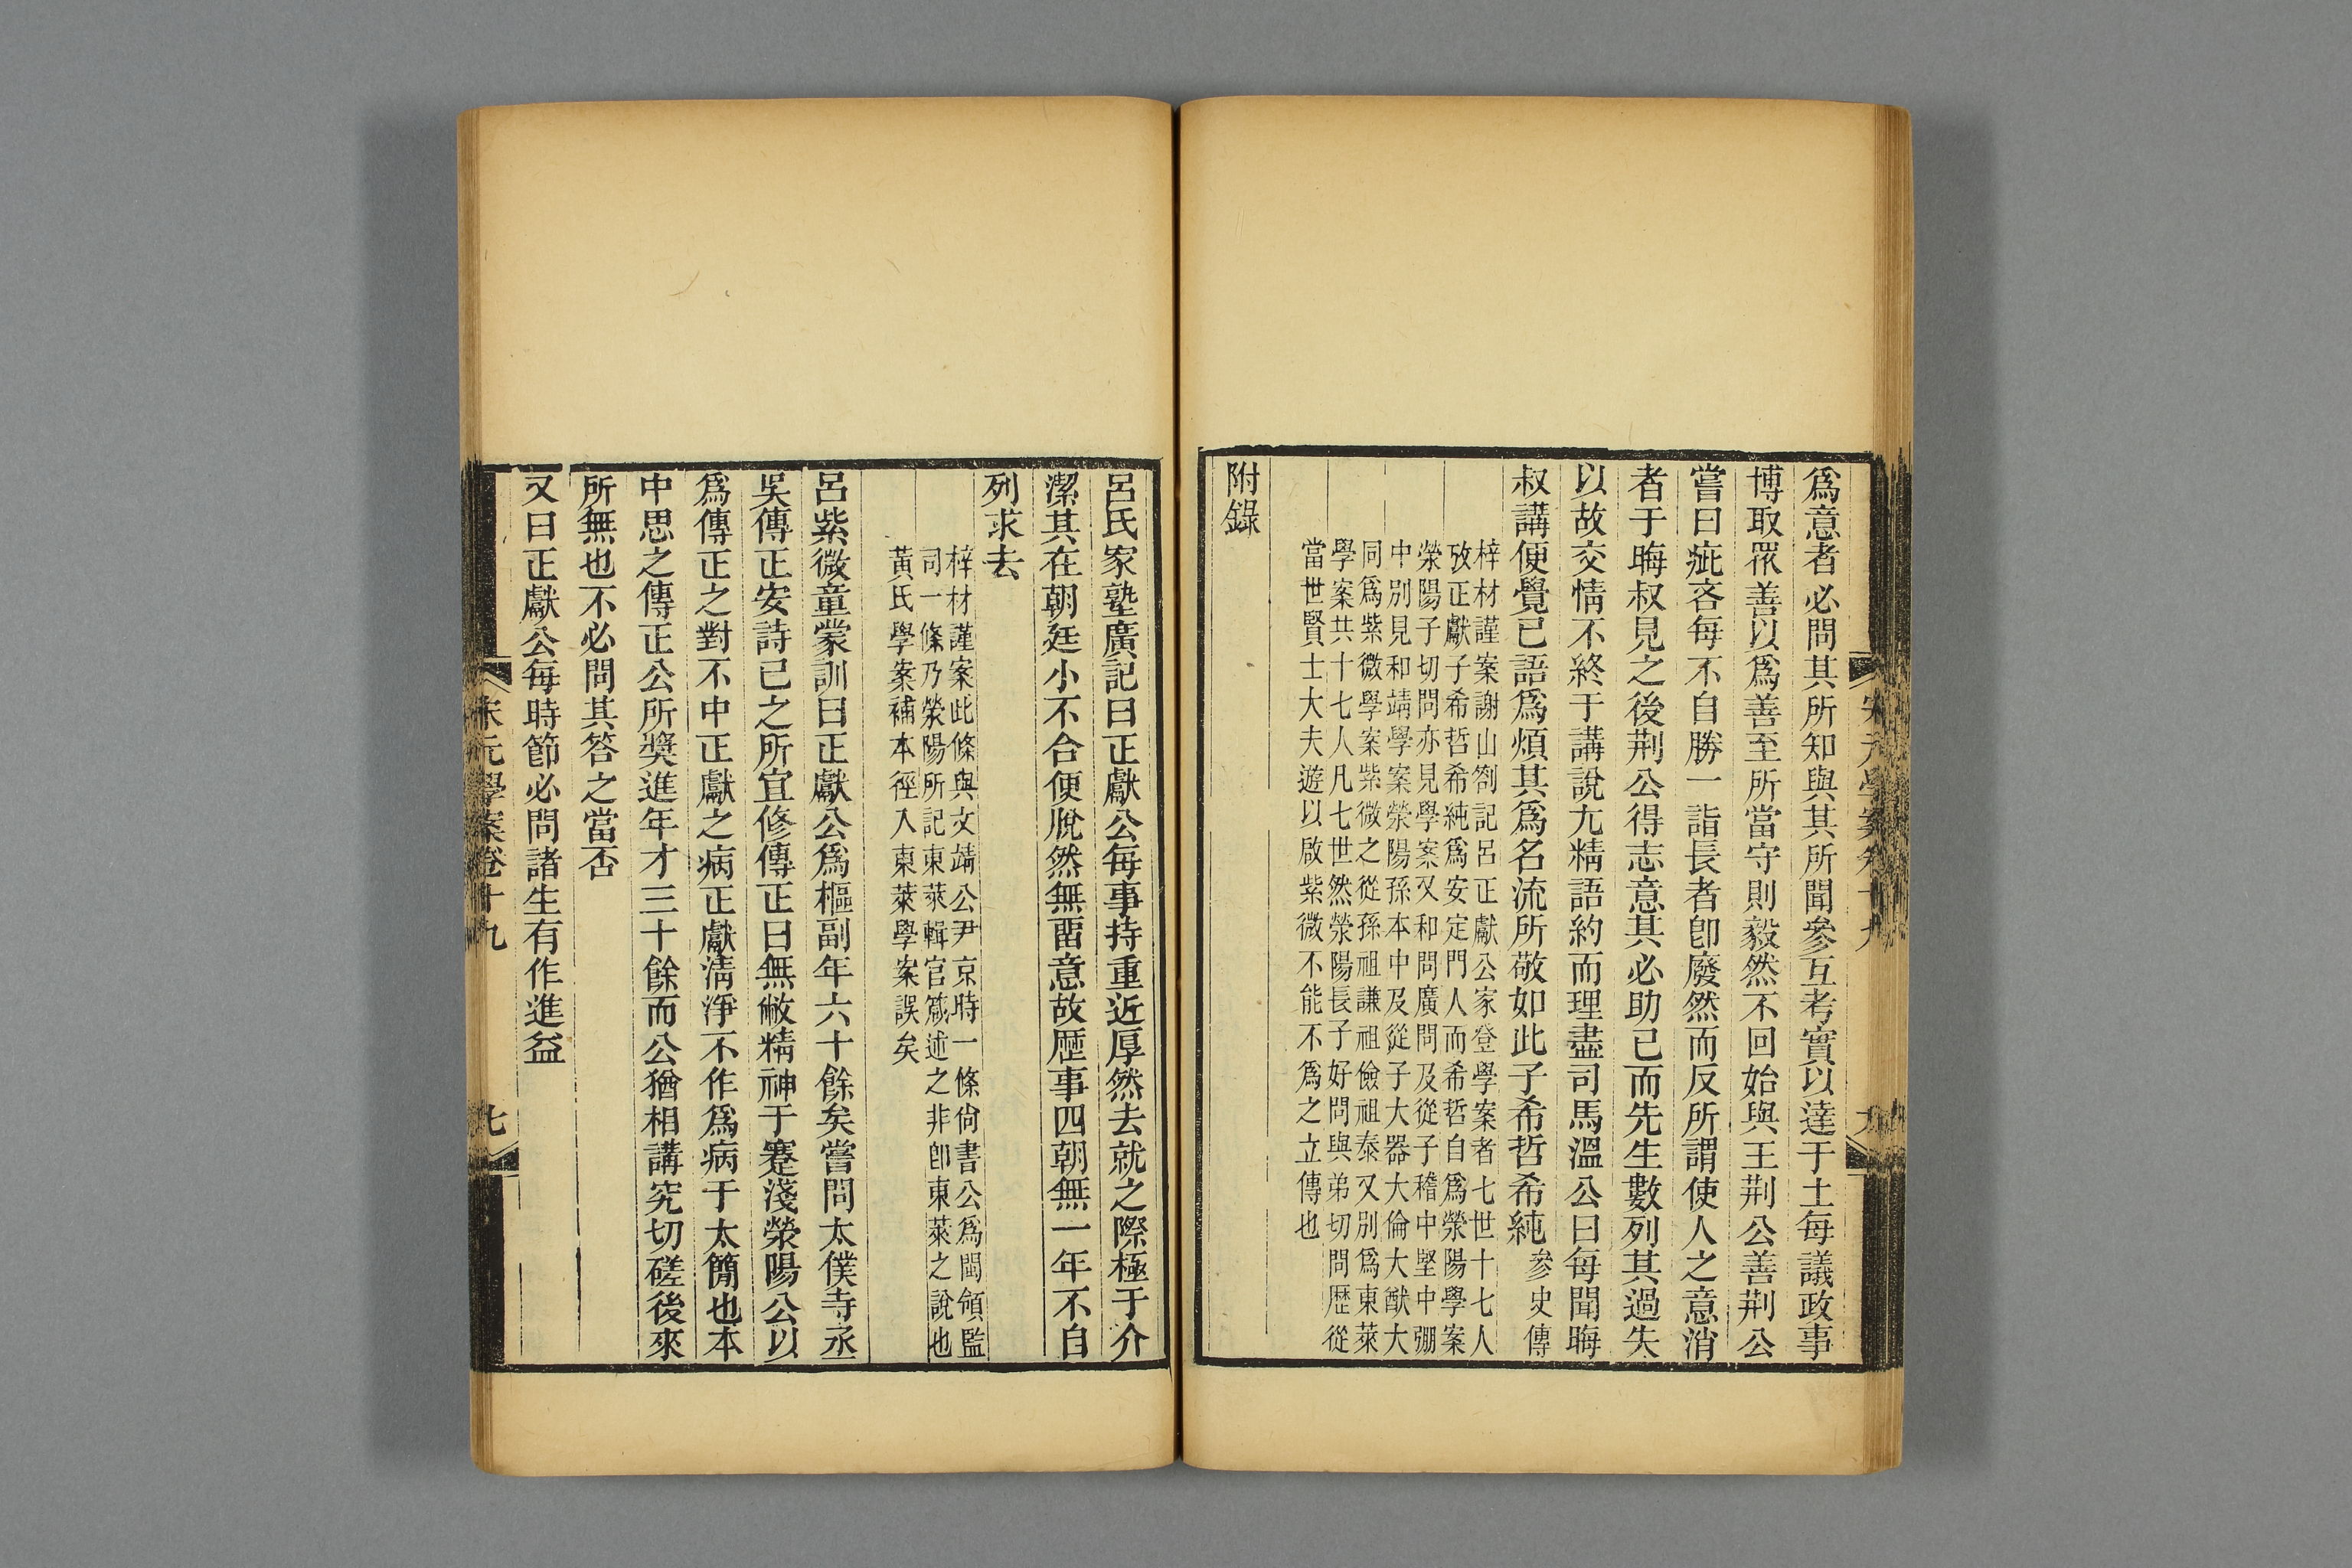 爲意者必問其所知與其所聞參互考實以達于上每議政事
博取眾善以爲善至所當守則毅然不回始與王荆公善荆公
嘗曰疵吝每不自勝一詣長者卽廢然而反所謂使人之意消
者于晦叔見之後荆公得志意其必助己而先生數列其過失
以故交情不終于講說尢精語約而理盡司馬溫公曰每聞晦
叔講便覺已語爲煩其爲名流所敬如此子希哲希純參史傳
梓材謹案謝山劄記呂正獻公家登學案者七世十七人
攷正獻子希哲希純爲安定門人而希哲自爲滎陽學案
滎陽子切問亦見學案又和問廣問及從子稽中堅中弸
中別見和靖學案滎陽孫本中及從子大器大倫大猷大
同爲紫微學案紫微之從孫祖謙祖儉祖泰又別爲東萊
學案共十七人凡七世然滎陽長子好問與弟切問歷從
當世賢士大夫遊以啟紫微不能不爲之立傳也
附錄
呂氏家塾廣記曰正獻公每事持重近厚然去就之際極于介
潔其在朝廷小不合便脫然無畱意故歷事四朝無一年不自
列求去
梓材謹案此條與文靖公尹京時一條尙書公爲閩領監
司一條乃滎陽所記東萊輯官箴述之非卽東萊之說也
黃氏學案補本徑入東萊學案誤矣
呂紫微童蒙訓曰正獻公爲樞副年六十餘矣嘗問太僕寺丞
吳傳正安詩已之所宜修傳正曰無敝精神于蹇淺滎陽公以
爲傳正之對不中正獻之病正獻淸淨不作爲病于太簡也本
中思之傳正公所獎進年才三十餘而公猶相講究切磋後來
所無也不必問其答之當否
又曰正獻公每時節必問諸生有作進益
宋元學案卷十九
七